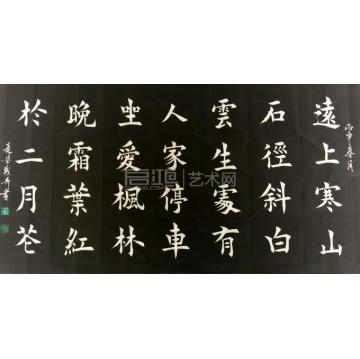 丙申春月
遠上寒山
石徑斜白
雲生處有
人家停車
坐愛楓林
晚霜葉紅
於二月花
艺术网